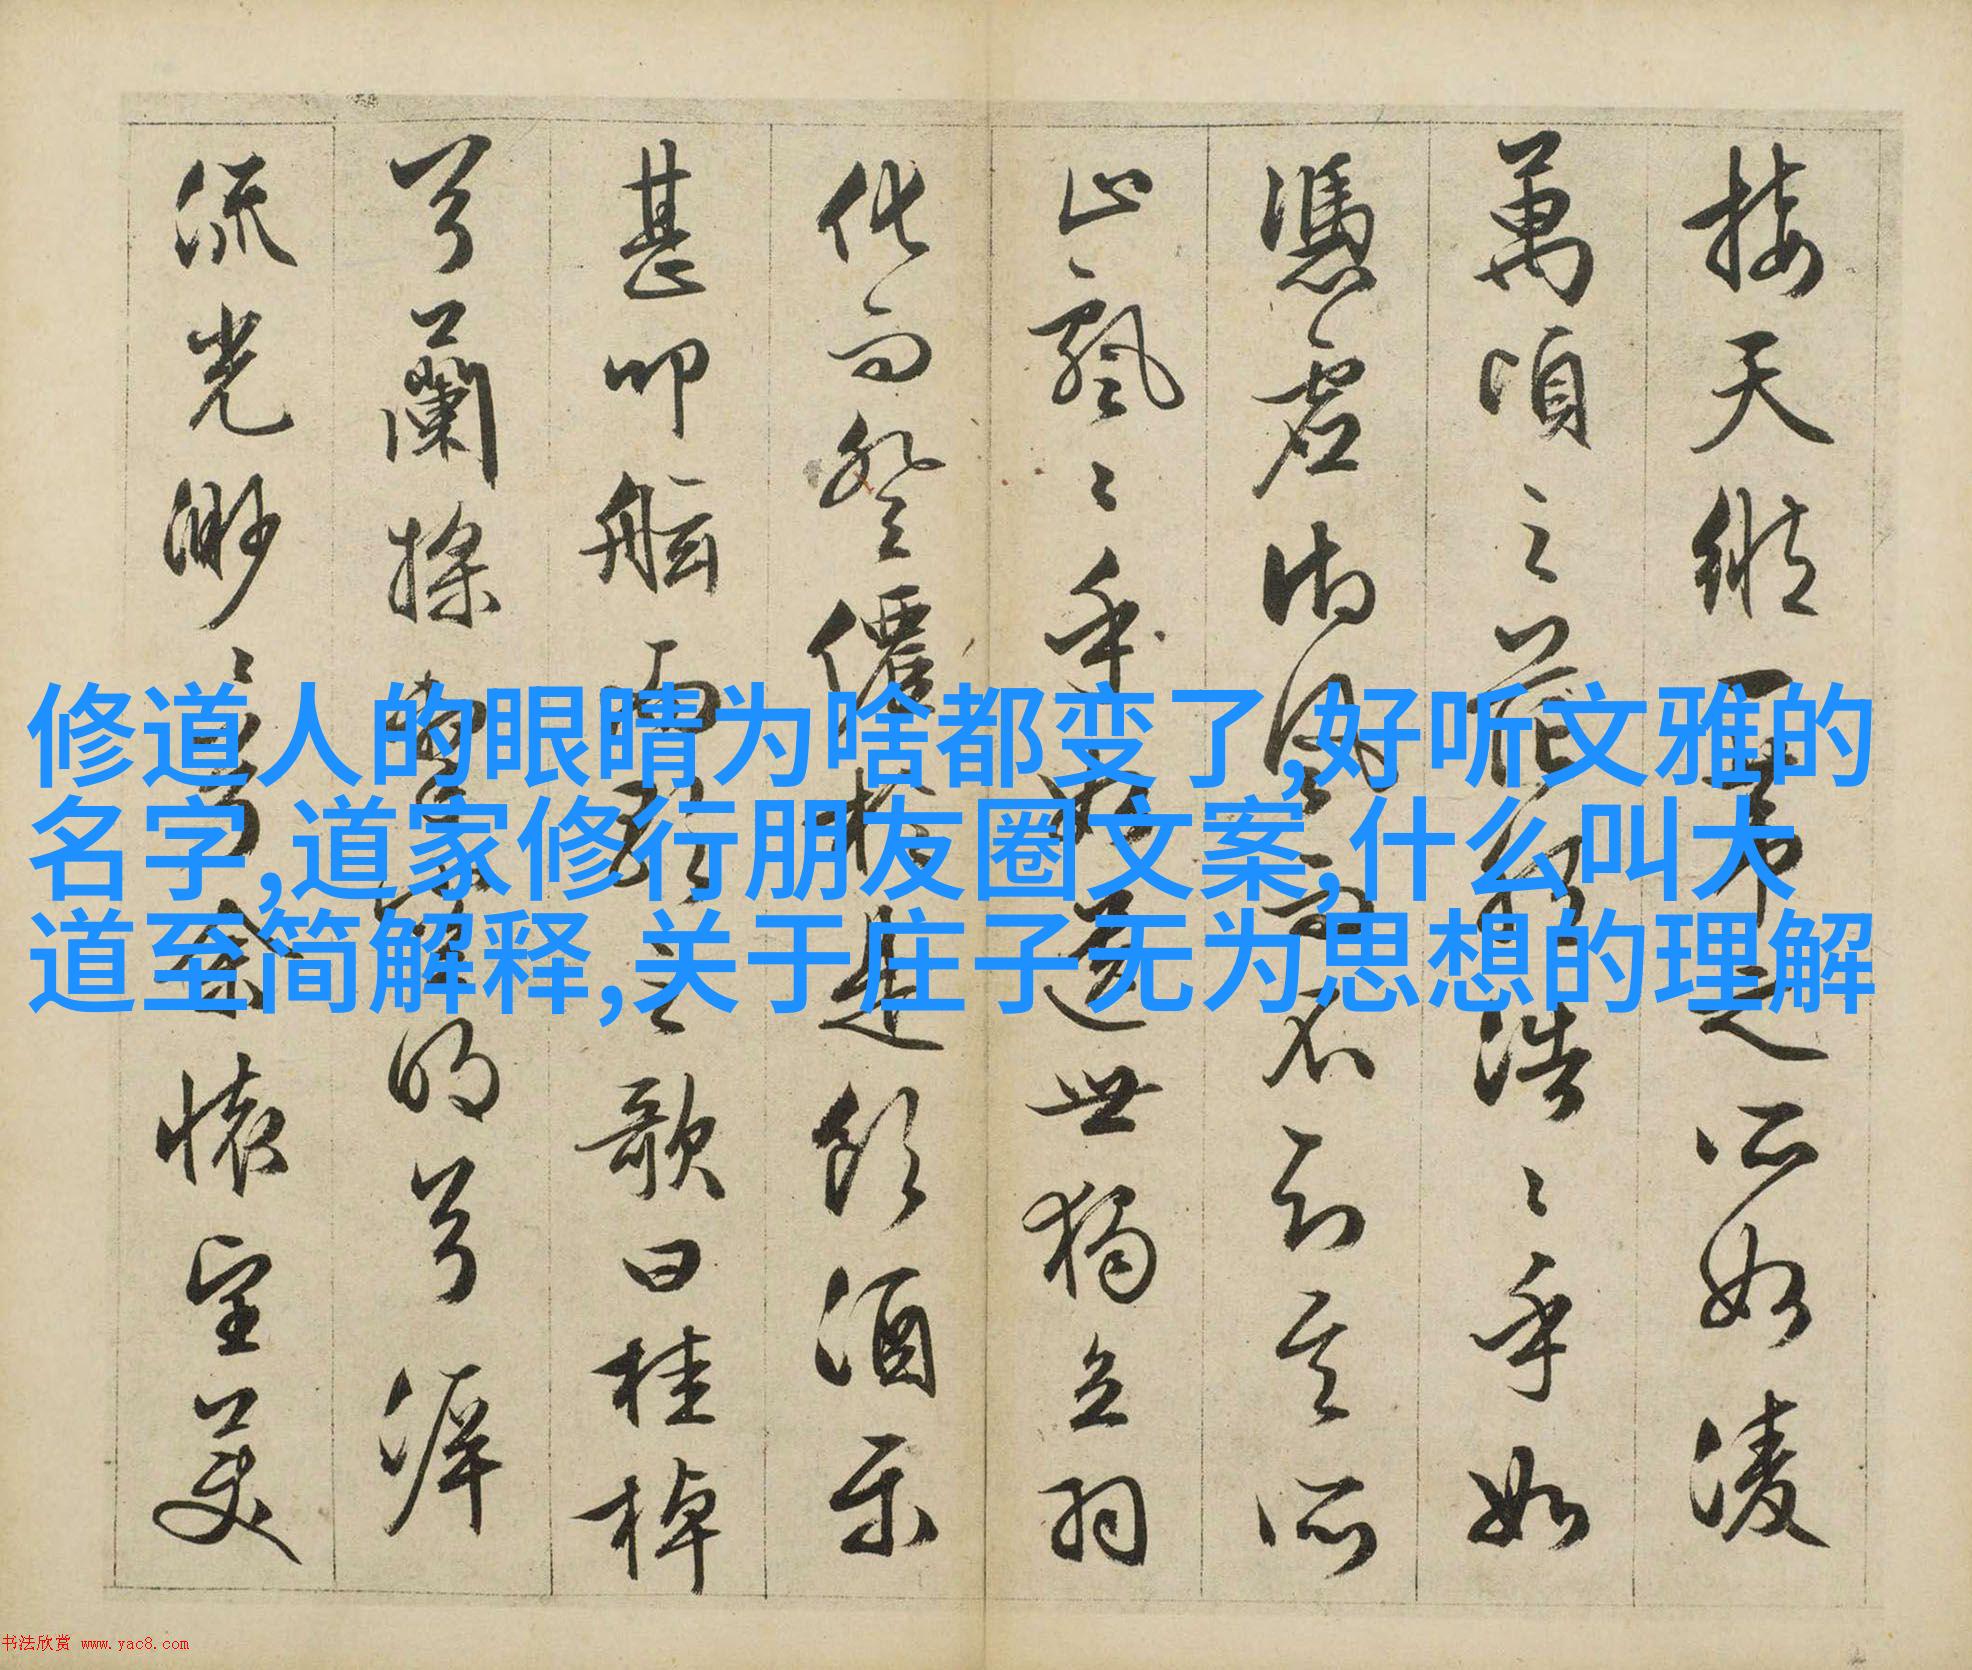 接天縱一葦之所如凌
萬頃之茫然浩〻乎如
憑虛御風而不知其所
止飄〻乎如遺世獨立羽
化而登僊於是飲酒樂
甚叩舷而歌之歌曰桂棹
兮蘭槳擊空明兮泝
流光渺〻兮余懷望美
修道人的眼睛为啥都变了,好听文雅的
名字,道家修行朋友圈文案,什么叫大
道至简解释,关于庄子无为思想的理解
书法欣赏 www.yac8.com